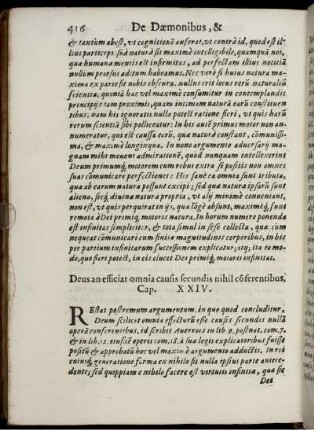 416 De Dæmonibus, &
& tantùm abest, vt cognitionē auferat, vt contrà id, quod est il-
lius particeps suâ naturâ sit maximè intelligibile, quamquā nos,
qua humana mentis est infirmitas, ad perfectam illius notitiā
nullum prorsus aditum habeamus. Nec verò si huius natura ma-
xima ex parte sit nobis obscura, nullus erit locus rerū naturaliū
scientia, quonia hac vel maximè consumitur in contemplandis
principijs tam proximis, quàm intimam naturā earū constituen
tibus, nam his ignoratis nulla potest ratione fieri, vt quis harū
rerum scientiā sibi polliceatur: In his autē primus motor non an-
numeratur, quòd est caussa earū, qua naturâ constant, cōmunissi-
ma, & maximè longinqua. In nono argumento aduersarij ma-
gnam mihi mouent admirationē, quòd nunquam intellexerint
Deum primumq́; motorem cum rebus extra se positis non omnes
suas cōmunicare perfectiones: His sanè ea omnia sunt tributa,
qua ab earum natura possunt excipi; sed qua natura ipsarū sunt
aliena, sicq́; diuina natura propria, vt alij minimè conueniant,
non est, vt quis per quirat en ei, qua lōgè absunt, maximèq́; sunt
remota à Dei primiq́; motoris natura. In horum numero ponenda
est infinitas simpliciter, & tota simul in sese collecta, qua cum
nequeat cōmunicari cum finitæ magnitudinis corporibus, in his
per partium infinitatem successiuam explicatur; itaq́; ita eo mo-
do, quo fieri potest, in eis elucet Dei primiq́; motoris infinitas.
Deus an efficiat omnia causis secundis nihil cōferentibus.
Cap. XXIV.
REstat postremum argumentum, in quo quod concluditur,
Deum scilicet omnia effecturū esse causis secundis nullā
operā conferentibus, id scribit Auerroes in lib. 9. post nat. com. 7.
& in lib. 12. eiusdē operis com. 18. à sua legis explicatoribus fuisse
positū & approbatū hoc vel maximè argumento adductis. In rei
cuiusq́; generatione forma ex nihilo fit nulla ipsius parte antece-
dente; sed quippiam e nihilo facere est virtutis infinitæ, qua sit
Dei